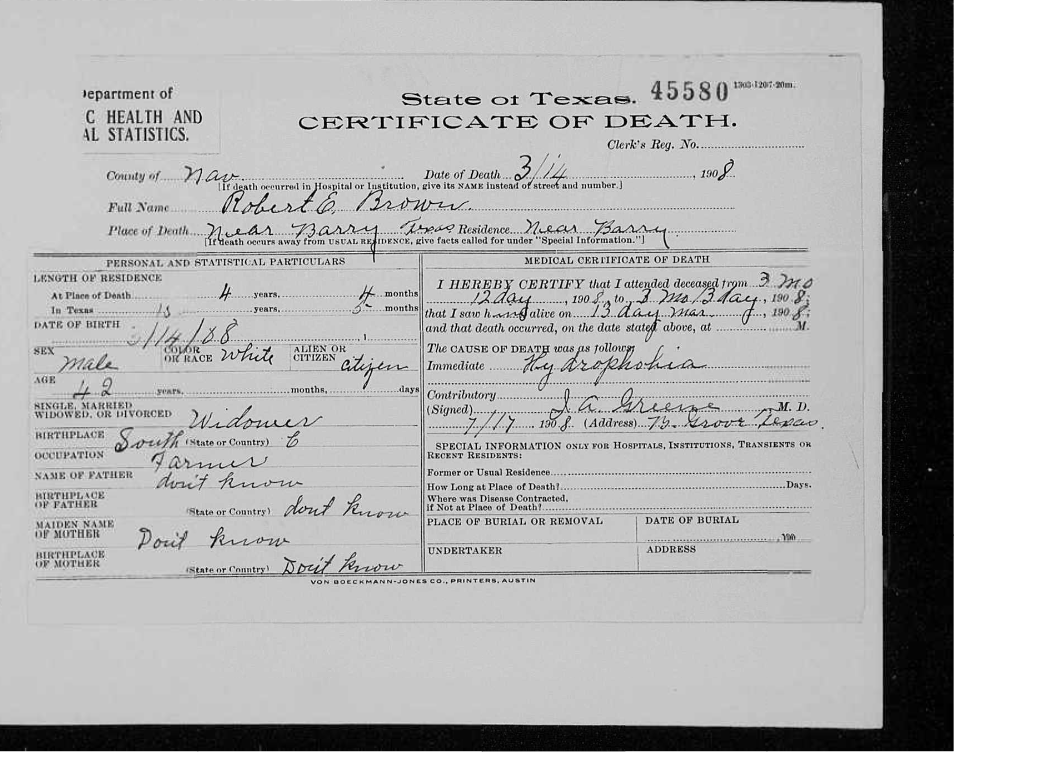 epartment of
C HEALTH AND
AL STATISTICS.
State of Texas. 45580 1303-1207-20m.
CERTIFICATE OF DEATH.
Clerk's Reg. No.
County of Nav. Date of Death 3/14, 1908.
[If death occurred in Hospital or Institution, give its NAME instead of street and number.]
Full Name Robert E. Brown.
Place of Death Near Barry Texas Residence Near Barry
[If death occurs away from USUAL RESIDENCE, give facts called for under "Special Information."]
PERSONAL AND STATISTICAL PARTICULARS
LENGTH OF RESIDENCE
At Place of Death 4 years, 4 months
In Texas 13 years, 5 months
DATE OF BIRTH
/14/
SEX Male COLOR OR RACE White ALIEN OR CITIZEN citizen
AGE
42 years, months, days
SINGLE, MARRIED
WIDOWED, OR DIVORCED Widower
BIRTHPLACE South (State or Country) C
OCCUPATION Farmer
NAME OF FATHER don't know
BIRTHPLACE
OF FATHER (State or Country) dont know
MAIDEN NAME
OF MOTHER Don't know
BIRTHPLACE
OF MOTHER (State or Country) Don't know
MEDICAL CERTIFICATE OF DEATH
I HEREBY CERTIFY that I attended deceased from 3 Mo
12 day, 1908, to 3 Mo 13 day, 1908;
that I saw him alive on 13 day Mar, 1908;
and that death occurred, on the date stated above, at M.
The CAUSE OF DEATH was as follows
Immediate Hydrophobia
Contributory
(Signed) J A Greene M. D.
7/17 1908 (Address) B. Grove Texas.
SPECIAL INFORMATION ONLY FOR HOSPITALS, INSTITUTIONS, TRANSIENTS OR
RECENT RESIDENTS:
Former or Usual Residence
How Long at Place of Death? Days.
Where was Disease Contracted,
if Not at Place of Death?
PLACE OF BURIAL OR REMOVAL DATE OF BURIAL
, 190
UNDERTAKER ADDRESS
VON BOECKMANN-JONES CO., PRINTERS, AUSTIN